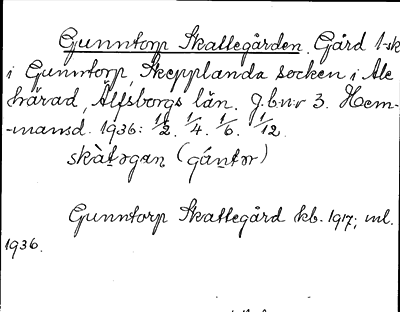 Gunntorp Skattegården. Gård 1 sk
i Gunntorp, Skepplanda socken i Ale
härad, Älfsborgs län. J.b.nr 3. Hem-
-mansd. 1936: 1/2. 1/4. 1/6. 1/12.
skàtəgaṇ (gántər)
Gunntorp Skattegård kb. 1917; ml.
1936.